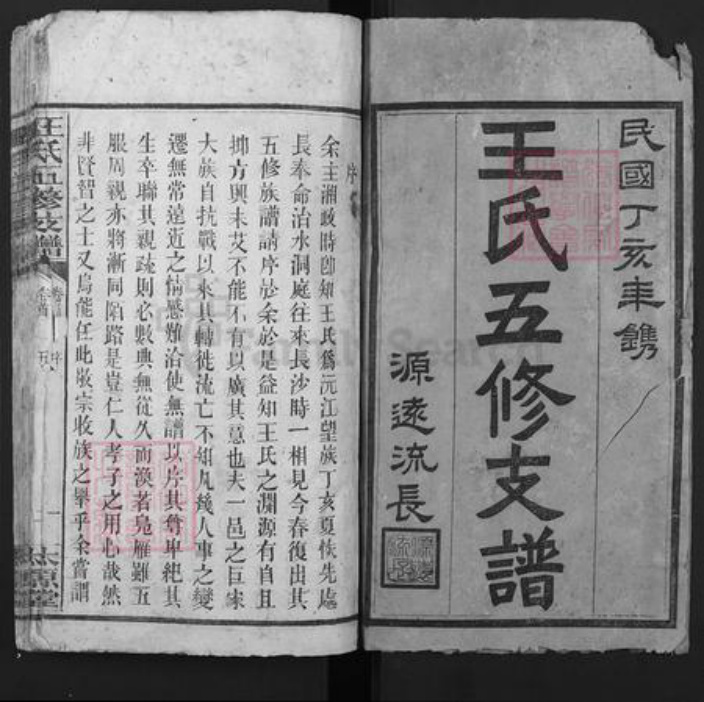 民國丁亥年鐫
王氏五修支譜
源遠流長
序
余主湘政時卽知王氏爲沅江望族丁亥夏恢先處
長奉命治水洞庭往來長沙時一相見今春復出其
五修族譜請序於余於是益知王氏之淵源有自且
方興未艾不能不有以廣其意也夫一邑之巨家
大族自抗戰以來其轉徙流亡不知凡幾人事之變
遷無常遠近之情感難洽使無譜以序其尊卑紀其
生卒聯其親疏則必數典無從久而渙若鳧雁雖五
服周親亦將漸同陌路是豈仁人孝子之用心哉然
非賢智之士又烏能任此敬宗收族之舉乎余嘗謂
王氏五修支譜
卷首
序
太原堂